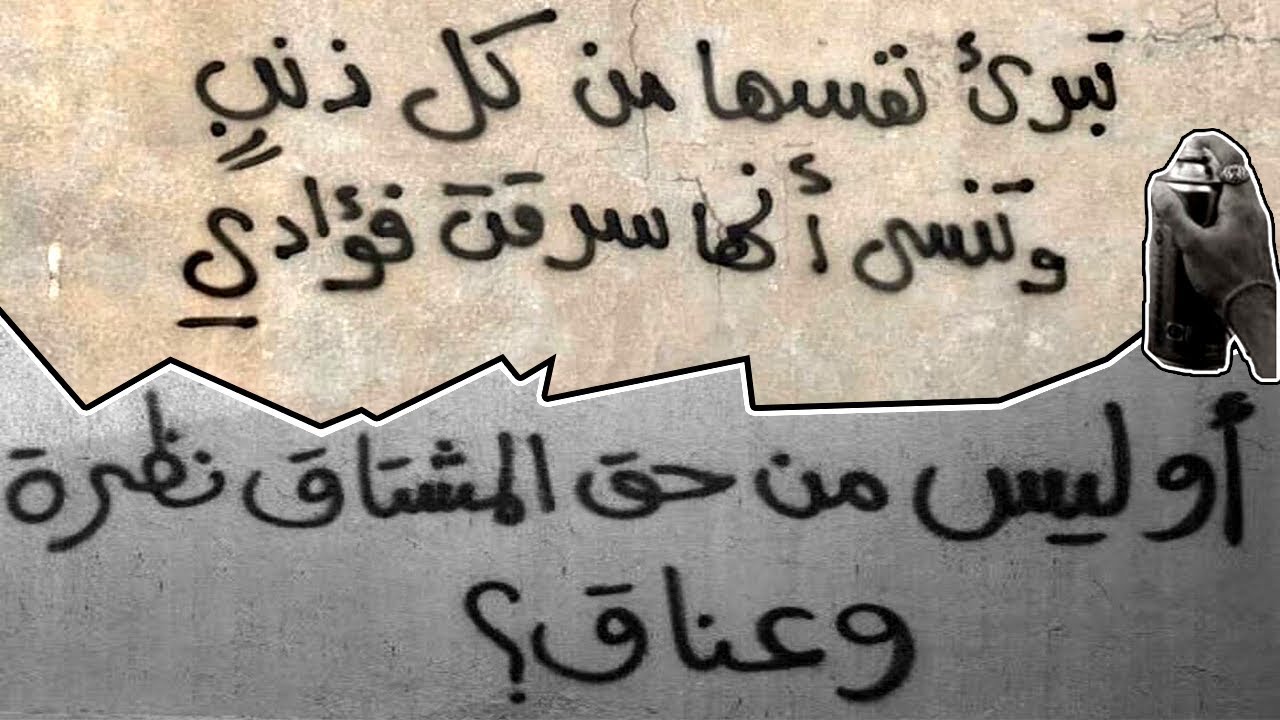 تَبرئ نفسها من كل ذنبٍ
وتَنسى أنها سرقَتَ فؤادي
أو ليس من حق المشتاق نظرة
وعناق؟